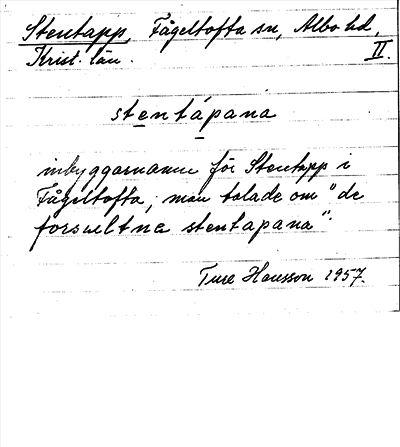 Stentapp, Fågeltofta sn, Albo hd,
Krist. län. II.
stentápana
inbyggarnamn för Stentapp i
Fågeltofta; man talade om "de
forsueltne stentapana".
Ture Hansson 1957.